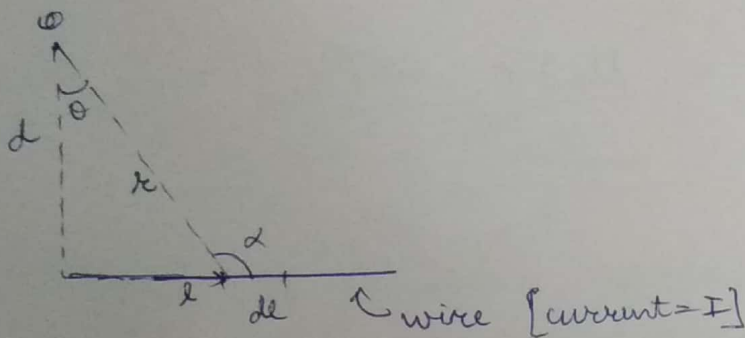 θ
d
r
α
l
dl
wire [current=I]